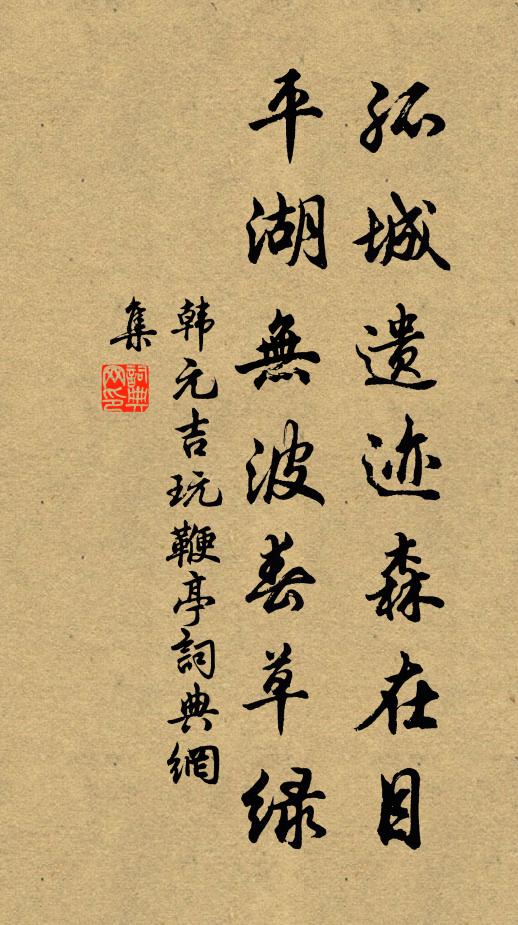 孤城遗迹森在目
平湖無波春草绿
韩元吉玩鞭亭詞典網
集
詞典网印